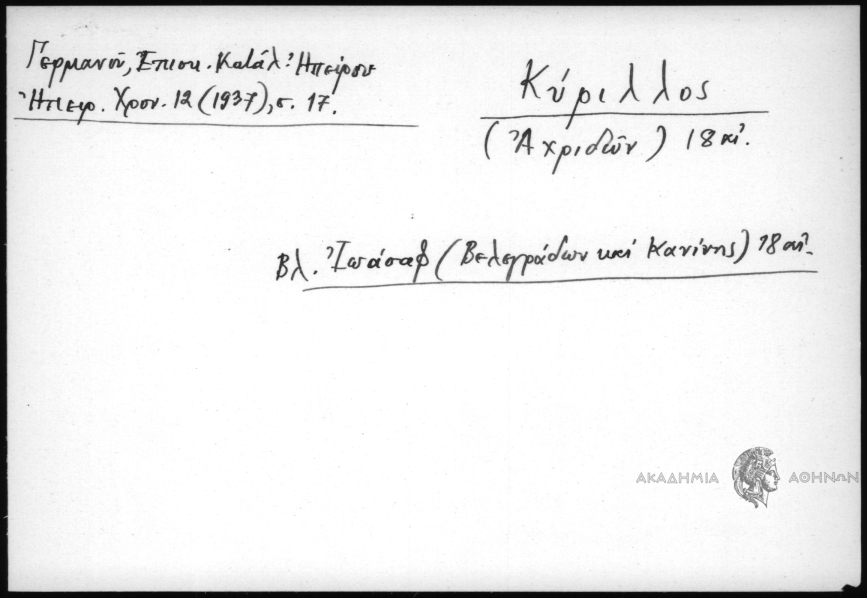 Γερμανοῦ, Ἐπισκ. Κατάλ. Ἠπείρου
Ἠπειρ. Χρον. 12 (1937), σ. 17.
Κύριλλος
(Ἀχριδῶν) 18 αἰ.
Βλ. Ἰωάσαφ (Βελεγράδων καὶ Κανίνης) 18 αἰ.
ΑΚΑΔΗΜΙΑ ΑΘΗΝΩΝ